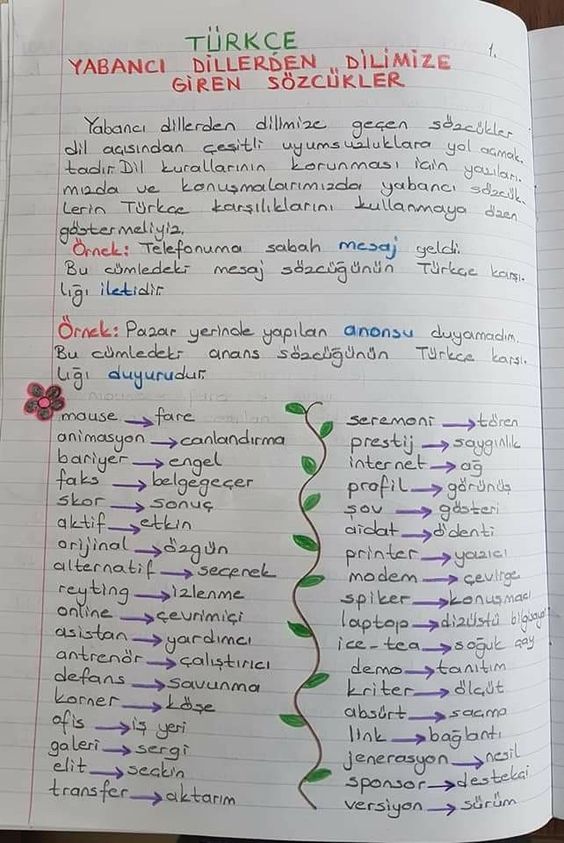 1.
TÜRKÇE
YABANCI DİLLERDEN DİLİMİZE
GİREN SÖZCÜKLER
Yabancı dillerden dilimize geçen sözcükler
dil açısından çeşitli uyumsuzluklara yol açmak.
tadır. Dil kurallarının korunması için yazıları.
mızda ve konuşmalarımızda yabancı sözcük.
lerin Türkçe karşılıklarını kullanmaya özen
göstermeliyiz.
Örnek: Telefonuma sabah mesaj geldi.
Bu cümledeki mesaj sözcüğünün Türkçe karşı.
lığı iletidir.
Örnek: Pazar yerinde yapılan anonsu duyamadım.
Bu cümledeki anans sözcüğünün Türkçe karşı.
lığı duyurudur.
mouse → fare
animasyon → canlandırma
bariyer → engel
faks → belgegeçer
skor → sonuç
aktif → etkin
orijinal → özgün
alternatif → seçenek
reyting → izlenme
online → çevrimiçi
asistan → yardımcı
antrenör → çalıştırıcı
defans → savunma
korner → köşe
ofis → iş yeri
galeri → sergi
elit → seçkin
transfer → aktarım
seremoni → tören
prestij → saygınlık
internet → ağ
profil → görünüş
şov → gösteri
aidat → ödenti
printer → yazıcı
modem → çevirge
spiker → konuşmacı
laptop → dizüstü bilgisayar
ice-tea → soğuk çay
demo → tanıtım
kriter → ölçüt
absürt → saçma
link → bağlantı
jenerasyon → nesil
sponsor → destekçi
versiyon → sürüm